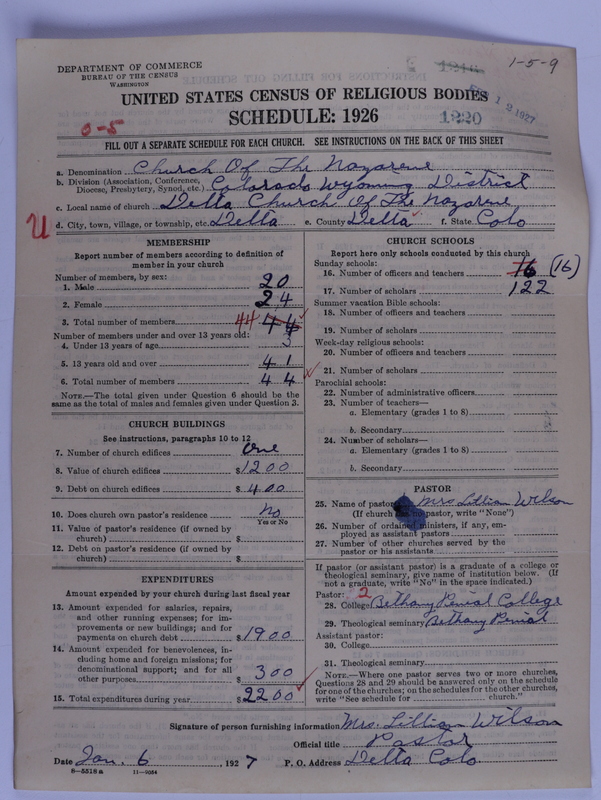 1-5-9
DEPARTMENT OF COMMERCE
BUREAU OF THE CENSUS
WASHINGTON
12 1927
UNITED STATES CENSUS OF RELIGIOUS BODIES
SCHEDULE: 1926
1220
0-5
FILL OUT A SEPARATE SCHEDULE FOR EACH CHURCH. SEE INSTRUCTIONS ON THE BACK OF THIS SHEET
a. Denomination Church Of The Nazarene
b. Division (Association, Conference, Diocese, Presbytery, Synod, etc.) Colorado Wyoming District
c. Local name of church Delta Church Of The Nazarene
U d. City, town, village, or township, etc. Delta e. County Delta f. State Colo
MEMBERSHIP
Report number of members according to definition of
member in your church
Number of members, by sex:
1. Male 20
2. Female 24
3. Total number of members 44 44
Number of members under and over 13 years old:
4. Under 13 years of age 3
5. 13 years old and over 41
6. Total number of members 44
NOTE.—The total given under Question 6 should be the
same as the total of males and females given under Question 3.
CHURCH BUILDINGS
See instructions, paragraphs 10 to 12
7. Number of church edifices One
8. Value of church edifices $1200
9. Debt on church edifices $400
10. Does church own pastor's residence No
Yes or No
11. Value of pastor's residence (if owned by
church) $
12. Debt on pastor's residence (if owned by
church) $
EXPENDITURES
Amount expended by your church during last fiscal year
13. Amount expended for salaries, repairs,
and other running expenses; for im-
provements or new buildings; and for
payments on church debt $1900
14. Amount expended for benevolences, in-
cluding home and foreign missions; for
denominational support; and for all
other purposes $300
15. Total expenditures during year $2200
CHURCH SCHOOLS
Report here only schools conducted by this church
Sunday schools:
16. Number of officers and teachers 16 (16)
17. Number of scholars 122
Summer vacation Bible schools:
18. Number of officers and teachers
19. Number of scholars
Week-day religious schools:
20. Number of officers and teachers
21. Number of scholars
Parochial schools:
22. Number of administrative officers
23. Number of teachers—
a. Elementary (grades 1 to 8)
b. Secondary
24. Number of scholars—
a. Elementary (grades 1 to 8)
b. Secondary
PASTOR
25. Name of pastor Mrs Lillian Wilson
(If church has no pastor, write "None")
26. Number of ordained ministers, if any, em-
ployed as assistant pastors
27. Number of other churches served by the
pastor or his assistants
If pastor (or assistant pastor) is a graduate of a college or
theological seminary, give name of institution below. (If
not a graduate, write "No" in the space indicated.)
Pastor: 2
28. College Bethany Penial College
29. Theological seminary Bethany Penial
Assistant pastor:
30. College
31. Theological seminary
NOTE.—Where one pastor serves two or more churches,
Questions 28 and 29 should be answered only on the schedule
for one of the churches; on the schedules for the other churches,
write "See schedule for church."
Signature of person furnishing information Mrs. Lillian Wilson
Official title Pastor
Date Jan. 6, 1927 P. O. Address Delta Colo
8-5518a 11-9054